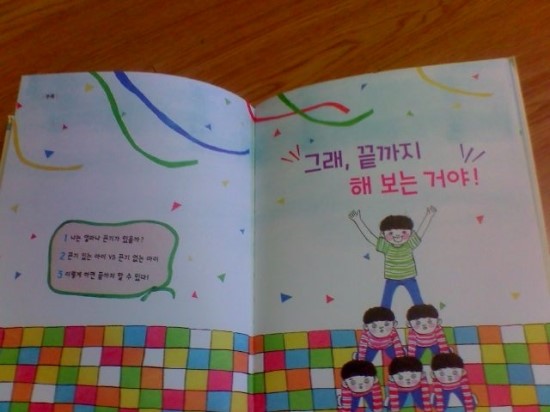 1 나는 얼마나 끈기가 있을까?
2 끈기 있는 아이 VS 끈기 없는 아이
3 이렇게 하면 끝까지 할 수 있다!
그래, 끝까지
해 보는 거야!